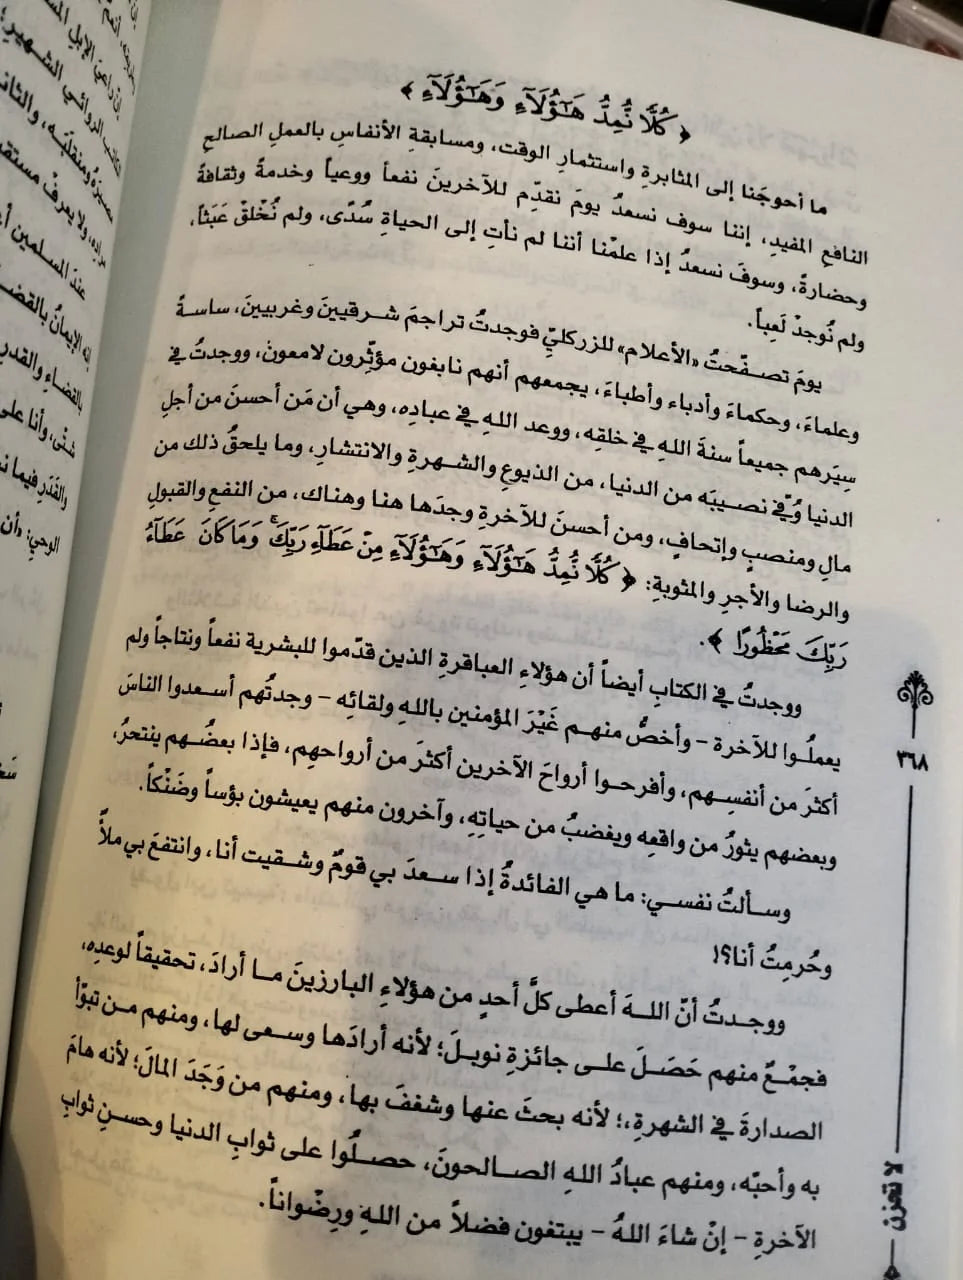 ﴿ كُلًّا نُّمِدُّ هَٰٓؤُلَآءِ وَهَٰٓؤُلَآءِ ﴾
ما أحوجَنا إلى المثابرةِ واستثمارِ الوقت، ومسابقةِ الأنفاسِ بالعملِ الصالحِ
النافعِ المفيدِ، إننا سوف نسعدُ يومَ نقدِّم للآخرينَ نفعاً ووعياً وخدمةً وثقافةً
وحضارةً، وسوفَ نسعدُ إذا علمْنا أننا لم نأتِ إلى الحياةِ سُدًى، ولم نُخْلقْ عَبَثاً،
ولم نُوجدْ لَعِباً.
يومَ تصفّحتُ «الأعلام» للزركليِّ فوجدتُ تراجمَ شرقيينَ وغربيينَ، ساسةً
وعلماءَ، وحكماءَ وأدباء وأطباءَ، يجمعهم أنهم نابغون مؤثِّرون لامعونَ، ووجدتُ في
سِيَرهم جميعاً سنةَ اللهِ في خلقِه، ووعد اللهِ في عبادِه، وهي أن مَن أحسنَ من أجلِ
الدنيا وُفّيَ نصيبَه من الدنيا، من الذيوعِ والشهرةِ والانتشارِ، وما يلحقُ ذلك من
مالٍ ومنصبٍ وإتحافٍ، ومن أحسنَ للآخرةِ وجدَها هنا وهناك، من النفعِ والقبولِ
والرضا والأجرِ والمثوبةِ: ﴿ كُلًّا نُّمِدُّ هَٰٓؤُلَآءِ وَهَٰٓؤُلَآءِ مِنْ عَطَآءِ رَبِّكَ ۚ وَمَا كَانَ عَطَآءُ
رَبِّكَ مَحْظُورًا ﴾.
ووجدتُ في الكتابِ أيضاً أن هؤلاءِ العباقرةِ الذين قدّموا للبشرية نفعاً ونتاجاً ولم
يعملُوا للآخرة - وأخصُّ منهم غَيْرَ المؤمنين باللهِ ولقائِه - وجدتُهم أسعدوا الناسَ
أكثرَ من أنفسِهم، وأفرحوا أرواحَ الآخرين أكثرَ من أرواحهِم، فإذا بعضُهم ينتحرُ،
وبعضهم يثورُ من واقعِه ويغضبُ من حياتِهِ، وآخرون منهم يعيشون بؤساً وضَنْكاً.
وسألتُ نفسي: ما هي الفائدةُ إذا سعدَ بي قومٌ وشقيت أنا، وانتفعَ بي ملأٌ
وحُرمِتُ أنا؟!
ووجدتُ أنّ اللهَ أعطى كلَّ أحدٍ من هؤلاءِ البارزينَ ما أرادَ، تحقيقاً لوعدِه،
فجمْعٌ منهم حَصَلَ على جائزةِ نوبلَ؛ لأنه أرادَها وسعى لها، ومنهم من تبوّأ
الصدارةَ في الشهرةِ،؛ لأنه بحثَ عنها وشغفَ بها، ومنهم من وَجَدَ المالَ؛ لأنه هامَ
به وأحبّه، ومنهم عبادُ اللهِ الصالحونَ، حصلُوا على ثوابِ الدنيا وحسنِ ثوابِ
الآخرةِ - إنْ شاءَ اللهُ - يبتغون فضلاً من اللهِ ورِضْواناً.
٣٦٨
لا تحزن